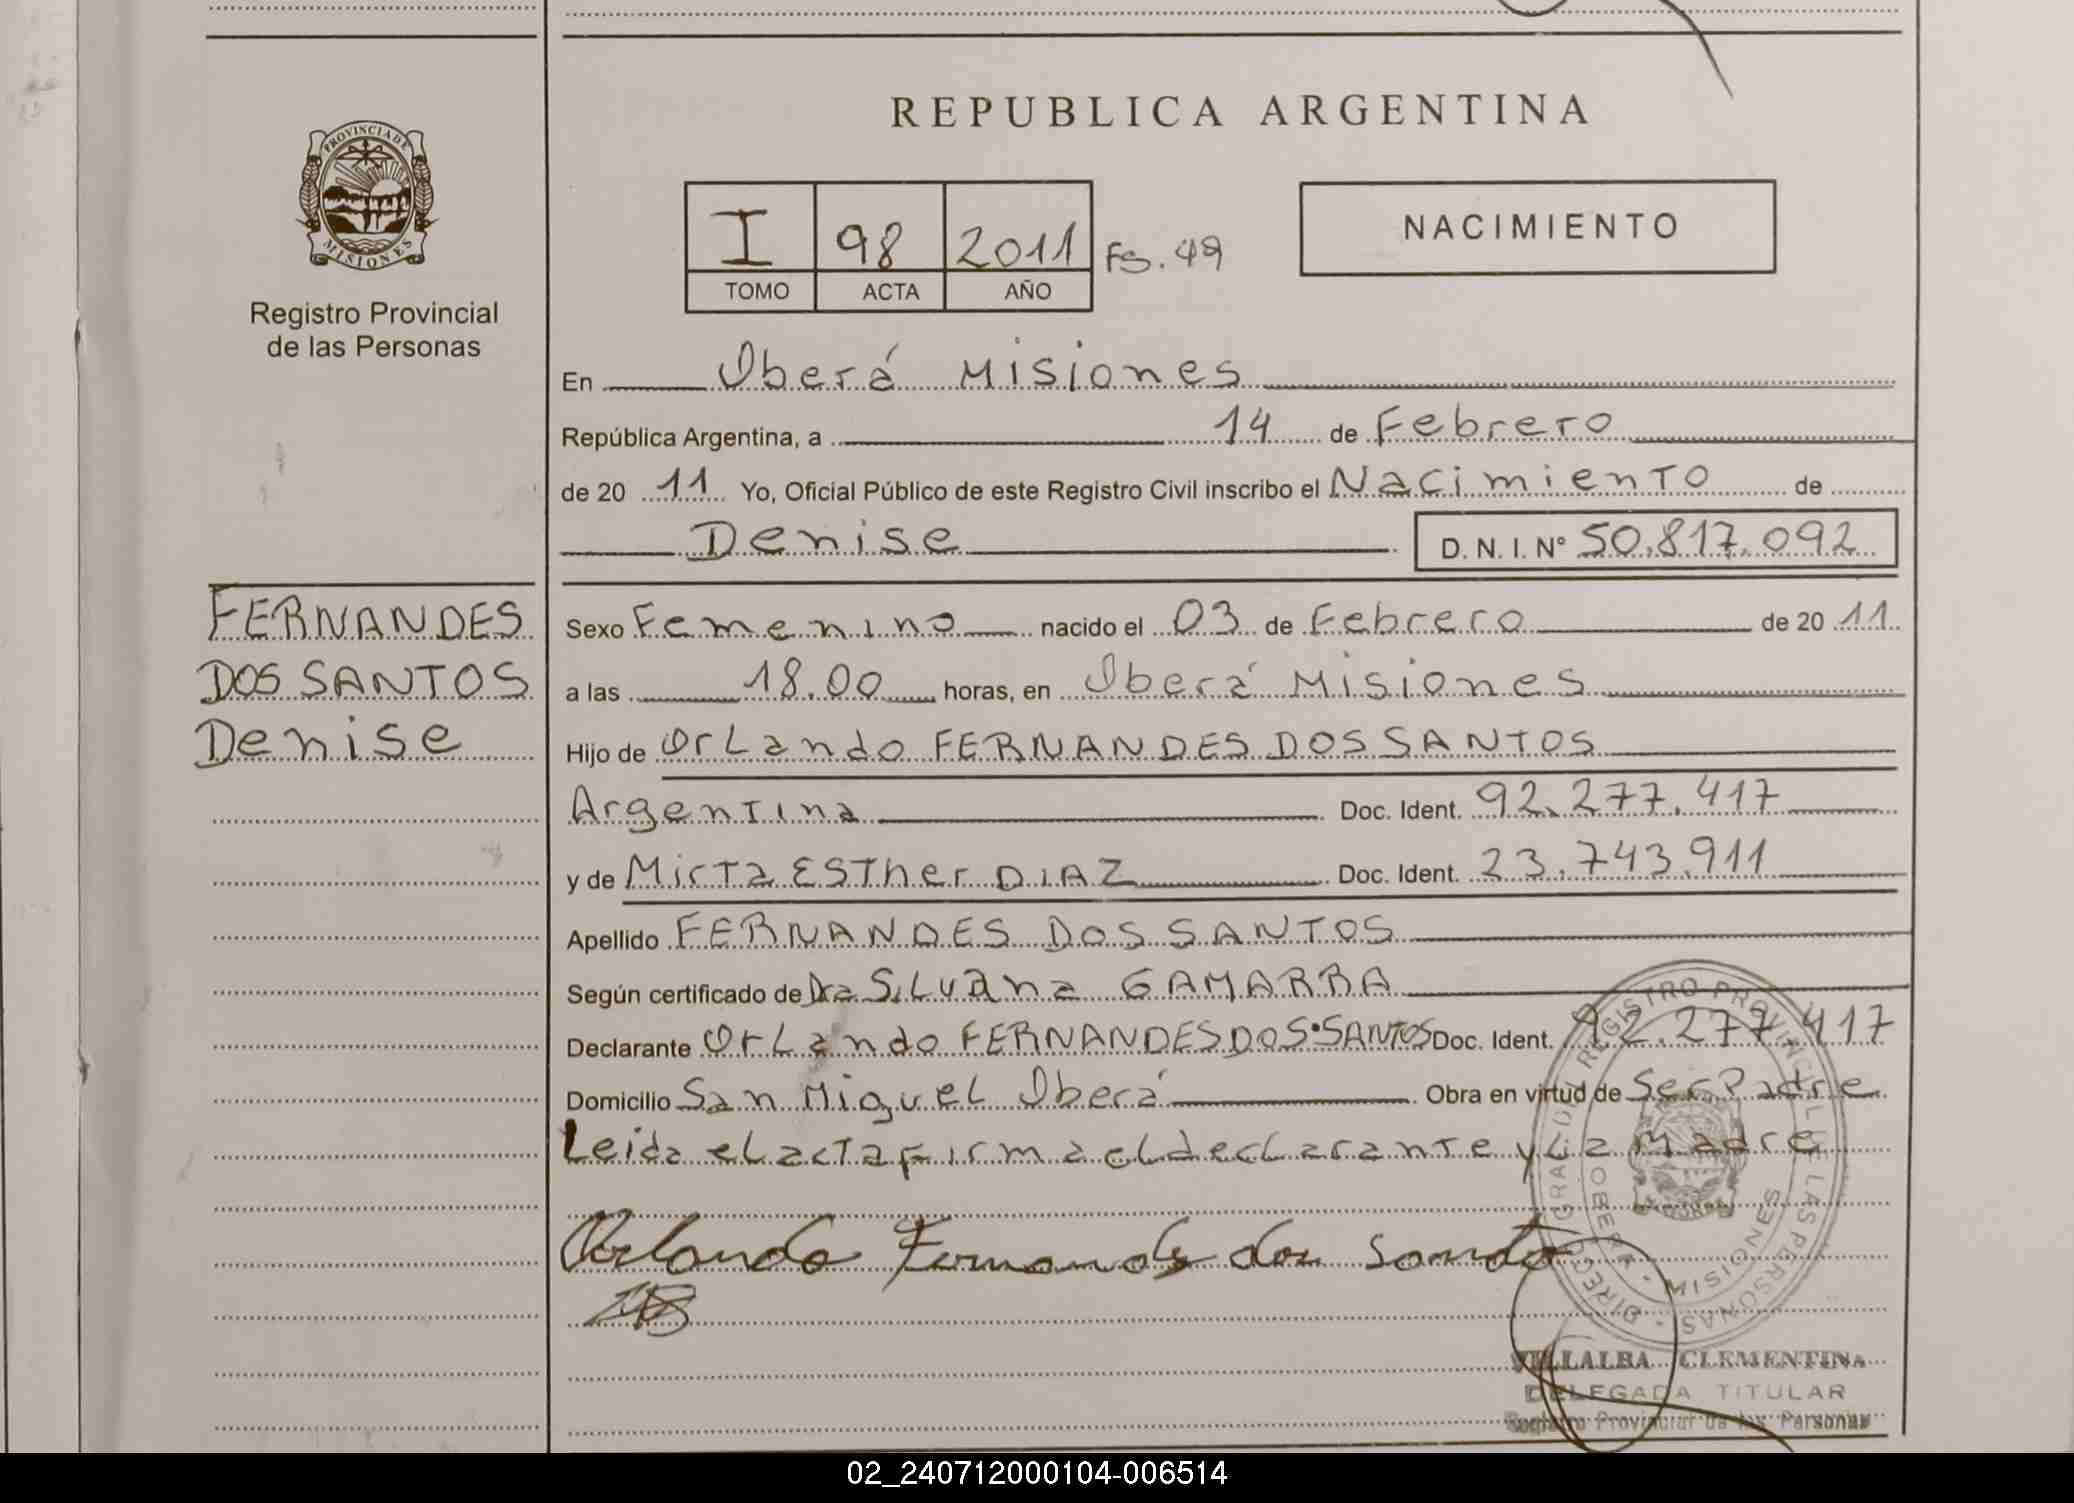 REPUBLICA ARGENTINA
PROVINCIA DE
MISIONES
Registro Provincial
de las Personas
I 98 2011 Fs. 49
TOMO ACTA AÑO
NACIMIENTO
En Oberá Misiones
República Argentina, a 14 de Febrero
de 20 11 Yo, Oficial Público de este Registro Civil inscribo el Nacimiento de
Denise D. N. I. Nº 50.817.092
FERNANDES
DOS SANTOS
Denise
Sexo Femenino nacido el 03 de Febrero de 20 11
a las 18.00 horas, en Oberá Misiones
Hijo de Orlando FERNANDES DOS SANTOS
Argentina Doc. Ident. 92.277.417
y de Mirta Esther DIAZ Doc. Ident. 23.743.911
Apellido FERNANDES DOS SANTOS
Según certificado de Dra Silvana GAMARRA
Declarante Orlando FERNANDES DOS SANTOS Doc. Ident. 92.277.417
Domicilio San Miguel Oberá Obra en virtud de Ser Padre
Leida el acta firma el declarante y La Madre
Orlando Fernandes dos Santo
DIRECC. GRAL. DEL REGISTRO PROVINCIAL DE LAS PERSONAS
OBERA - MISIONES
VILLALBA CLEMENTINA
DELEGADA TITULAR
Registro Provincial de las Personas
02_240712000104-006514